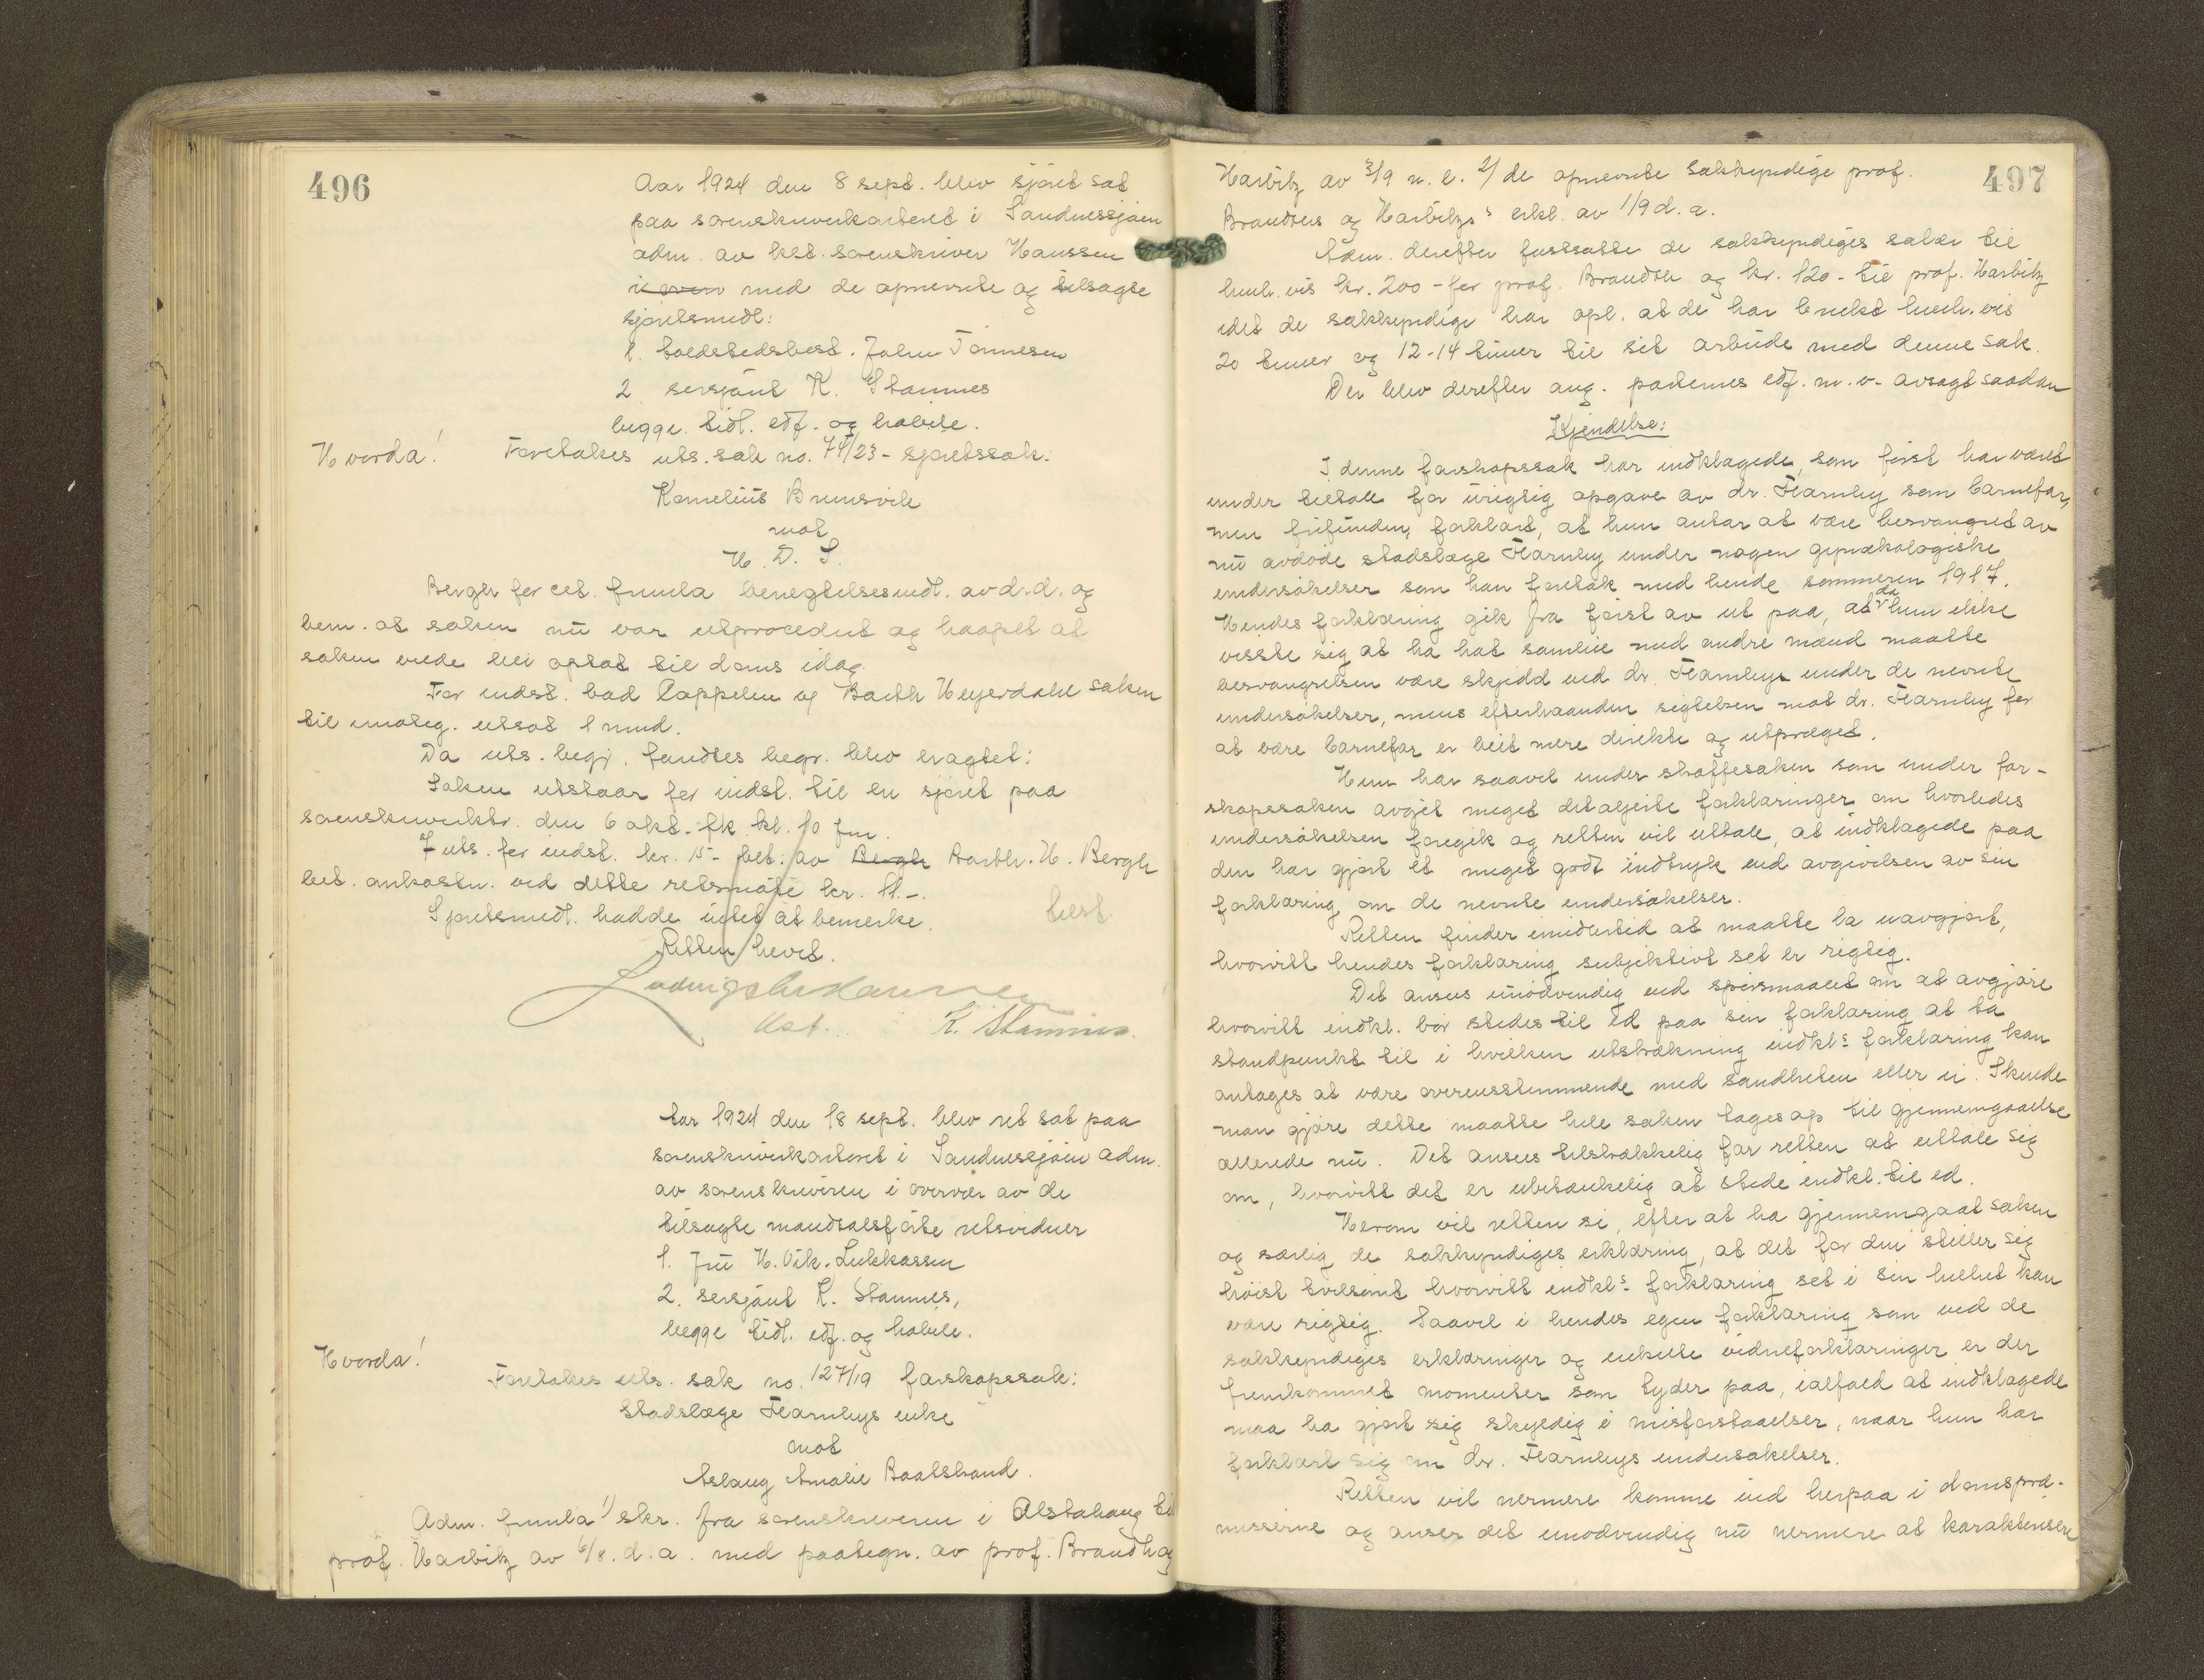 496
Aar 1924 den 8 sept. blev sjøret sat
paa sorenskriverkontoret i Sandnessjøen
adm. av kst. sorenskriver Hanssen
med de opnevnte og tilsagte
sjøretsmedl:
1. toldstedsbest. Johan Tønnesen
2 sersjant K. Stamnes
begge tidl. edf. og habile.
Hvorda! Foretokes uts. sak no. 74/23 - sjøretssak:
Kornelius Brunsvik
mot
N. D. S.
Bergh for cit. fremla benegtelsesmdt. av d.d. og
bem. at saken nu var utprocedert og haapet at
saken vilde bli optat til doms idag.
For indst. bad Cappelen og Barth Heyerdahl saken
til imøteg. utsat 1 mnd.
Da uts. begj. fandtes begr. blev eragtet:
Saken utstaar for indst. til en sjøret paa
sorenskriverktr. den 6 okt. fk. kl. 10 fm.
F uts. for indst. kr. 15 - bet. av Bergh Barth. H. Bergh
bet. omkostn. ved dette retsmøte kr. 11.-.
Sjøretsmedl. hadde intet at bemerke.
Retten hevet.
Ludvig Hanssen
kst. K. Stamnes.
Aar 1924 den 18 sept. blev ret sat paa
sorenskriverkontoret i Sandnessjøen adm.
av sorenskriveren i overvær av de
tilsagte mandtalsførte retsvidner
1. fru H. Vik-Lukkassen
2. sersjant K. Stamnes,
begge tidl. edf. og habile.
Hvorda!
Foretokes uts. sak no. 127/19 farskapssak:
Stadslæge Fearnleys enke
mot
Aslaug Amalie Baatstrand.
Adm. fremla 1/ skr. fra sorenskriveren i Alstahaug til
prof. Harbitz av 6/8. d.a. med paategn. av prof. Brandt og
497
Harbitz av 3/9 n. e. 2/ de opnevnte sakkyndige prof.
Brandts og Harbitzs erkl. av 1/9 d. a.
Adm. derefter fastsatte de sakkyndiges salær til
henh. vis kr. 200 - for prof. Brandt og kr. 120 - til prof. Harbitz
idet de sakkyndige har opl. at de har brukt henh. vis
20 timer og 12-14 timer til sit arbeide med denne sak.
Der blev derefter ang. parternes edf. m. v. avsagt saadan
Kjendelse:
I denne farskapssak har indklagede, som først har været
under tiltale for urigtig opgave av dr. Fearnley som barnefar,
men frifunden, forklart, at hun antar at være besvangret av
nu avdøde stadslæge Fearnley under nogen gynækologiske
undersøkelser som han foretok med hende sommeren 1917.
Hendes forklaring gik fra først av ut paa, at da hun ikke
visste sig at ha hat samleie med andre mænd maatte
besvangrelsen være skjedd ved dr. Fearnleys under de nevnte
undersøkelser, mens efterhaanden sigtelsen mot dr. Fearnley for
at være barnefar er blit mere direkte og utpræget.
Hun har saavel under straffesaken som under far-
skapssaken avgit meget detaljerte forklaringer om hvorledes
undersøkelsen foregik og retten vil uttale, at indklagede paa
den har gjort et meget godt indtryk ved avgivelsen av sin
forklaring om de nevnte undersøkelser.
Retten finder imidlertid at maatte la uavgjort,
hvorvitt hendes forklaring subjektivt set er rigtig.
Det ansees unødvendig ved spørsmaalet om at avgjøre
hvorvitt indkl. bør stedes til ed paa sin forklaring at ta
standpunkt til i hvilken utstrækning indkls forklaring kan
antages at være overensstemmende med sandheten eller ei. Skulde
man gjøre dette maatte hele saken tages op til gjennemgaaelse
allerede nu. Det ansees tilstrækkelig for retten at uttale sig
om, hvorvitt det er ubetænkelig at stede indkl. til ed.
Herom vil retten si, efter at ha gjennemgaat saken
og særlig de sakkyndiges erklæring, at det for den stiller sig
høist tvilsomt hvorvitt indkls forklaring set i sin helhet kan
være rigtig. Saavel i hendes egen forklaring som ved de
sakkyndiges erklæringer og enkelte vidneforklaringer er der
fremkommet momenter som tyder paa, ialfald at indklagede
maa ha gjort sig skyldig i misforstaaelser, naar hun har
forklart sig om dr. Fearnleys undersøkelser.
Retten vil nærmere komme ind herpaa i domspræ-
misserne og anser det unødvendig nu nærmere at karakterisere